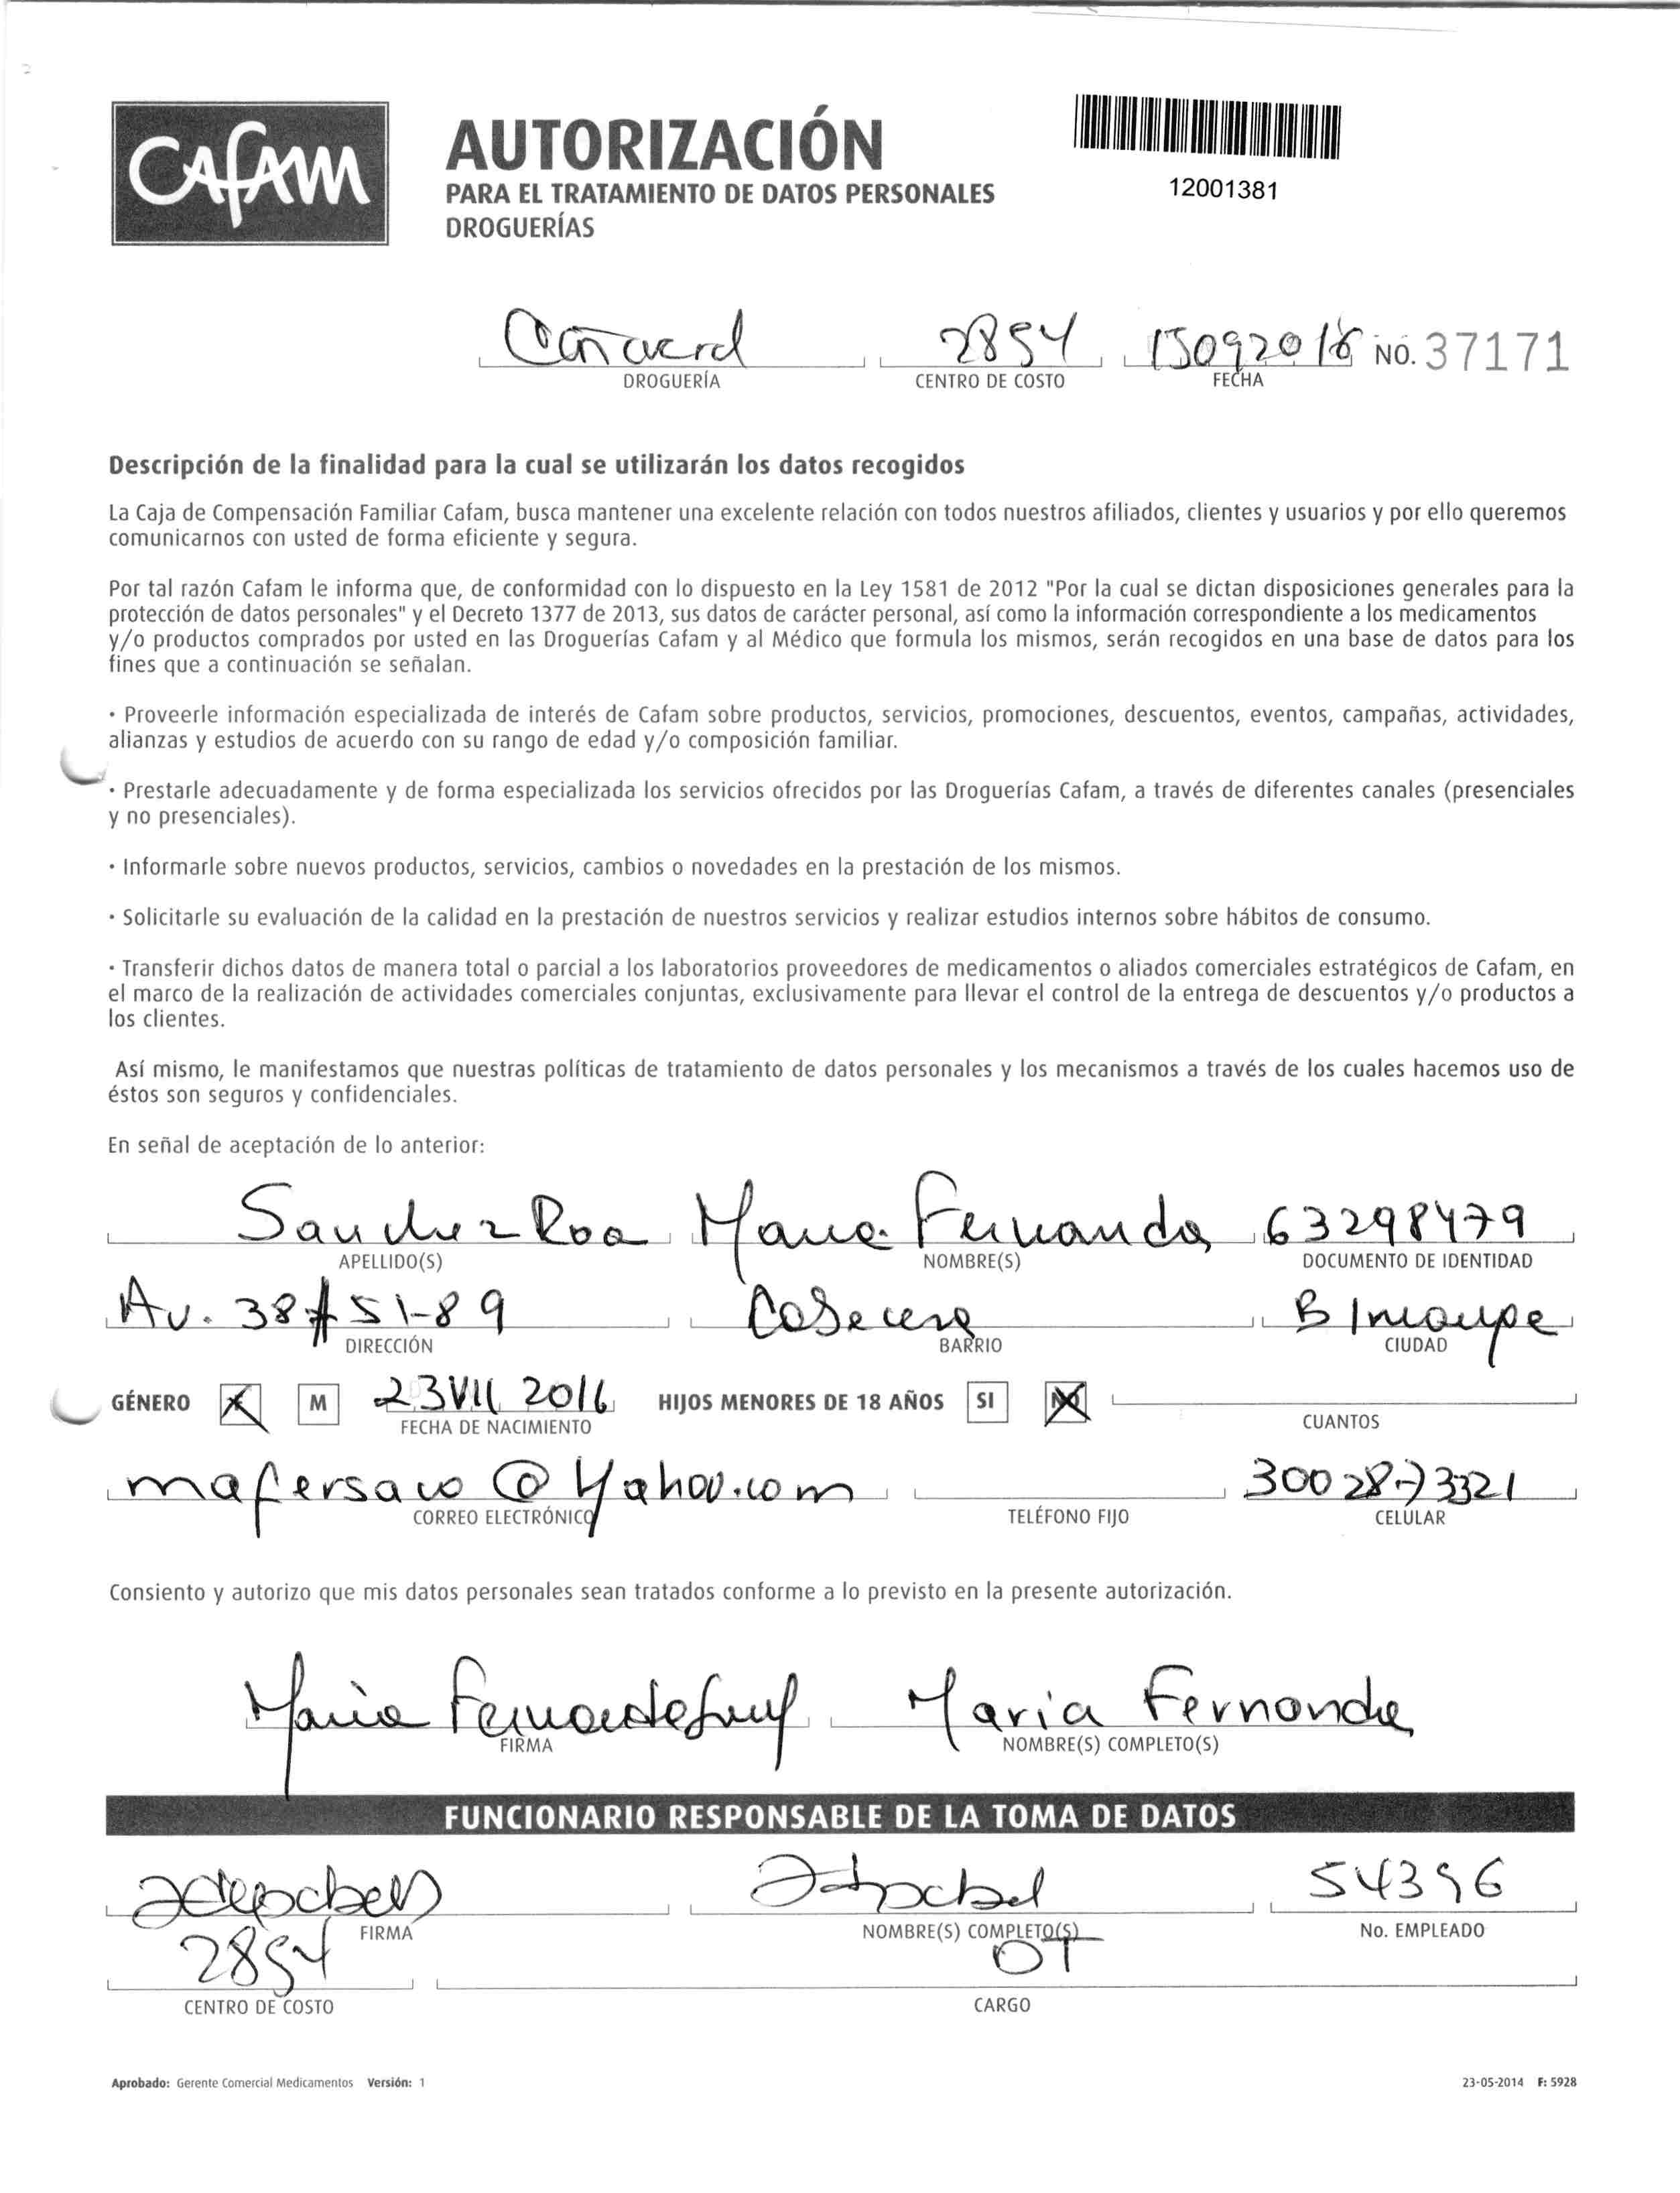 CAFAM
AUTORIZACIÓN
PARA EL TRATAMIENTO DE DATOS PERSONALES
DROGUERÍAS
12001381
Cañaveral 2854 15092016 No. 37171
DROGUERÍA CENTRO DE COSTO FECHA
Descripción de la finalidad para la cual se utilizarán los datos recogidos
La Caja de Compensación Familiar Cafam, busca mantener una excelente relación con todos nuestros afiliados, clientes y usuarios y por ello queremos
comunicarnos con usted de forma eficiente y segura.
Por tal razón Cafam le informa que, de conformidad con lo dispuesto en la Ley 1581 de 2012 "Por la cual se dictan disposiciones generales para la
protección de datos personales" y el Decreto 1377 de 2013, sus datos de carácter personal, así como la información correspondiente a los medicamentos
y/o productos comprados por usted en las Droguerías Cafam y al Médico que formula los mismos, serán recogidos en una base de datos para los
fines que a continuación se señalan.
• Proveerle información especializada de interés de Cafam sobre productos, servicios, promociones, descuentos, eventos, campañas, actividades,
alianzas y estudios de acuerdo con su rango de edad y/o composición familiar.
• Prestarle adecuadamente y de forma especializada los servicios ofrecidos por las Droguerías Cafam, a través de diferentes canales (presenciales
y no presenciales).
• Informarle sobre nuevos productos, servicios, cambios o novedades en la prestación de los mismos.
• Solicitarle su evaluación de la calidad en la prestación de nuestros servicios y realizar estudios internos sobre hábitos de consumo.
• Transferir dichos datos de manera total o parcial a los laboratorios proveedores de medicamentos o aliados comerciales estratégicos de Cafam, en
el marco de la realización de actividades comerciales conjuntas, exclusivamente para llevar el control de la entrega de descuentos y/o productos a
los clientes.
Así mismo, le manifestamos que nuestras políticas de tratamiento de datos personales y los mecanismos a través de los cuales hacemos uso de
éstos son seguros y confidenciales.
En señal de aceptación de lo anterior:
Sanchez Roa Maria Fernanda 63298479
APELLIDO(S) NOMBRE(S) DOCUMENTO DE IDENTIDAD
Av. 38 # 51-89 Cabecera B/manga
DIRECCIÓN BARRIO CIUDAD
GÉNERO F M 23 VII 2016 HIJOS MENORES DE 18 AÑOS SI NO
FECHA DE NACIMIENTO CUANTOS
mafersaco@Yahoo.com 3002873321
CORREO ELECTRÓNICO TELÉFONO FIJO CELULAR
Consiento y autorizo que mis datos personales sean tratados conforme a lo previsto en la presente autorización.
Maria Fernanda Maria Fernanda
FIRMA NOMBRE(S) COMPLETO(S)
FUNCIONARIO RESPONSABLE DE LA TOMA DE DATOS
54396
FIRMA NOMBRE(S) COMPLETO(S) No. EMPLEADO
2854 OT
CENTRO DE COSTO CARGO
Aprobado: Gerente Comercial Medicamentos Versión: 1 23-05-2014 F: 5928